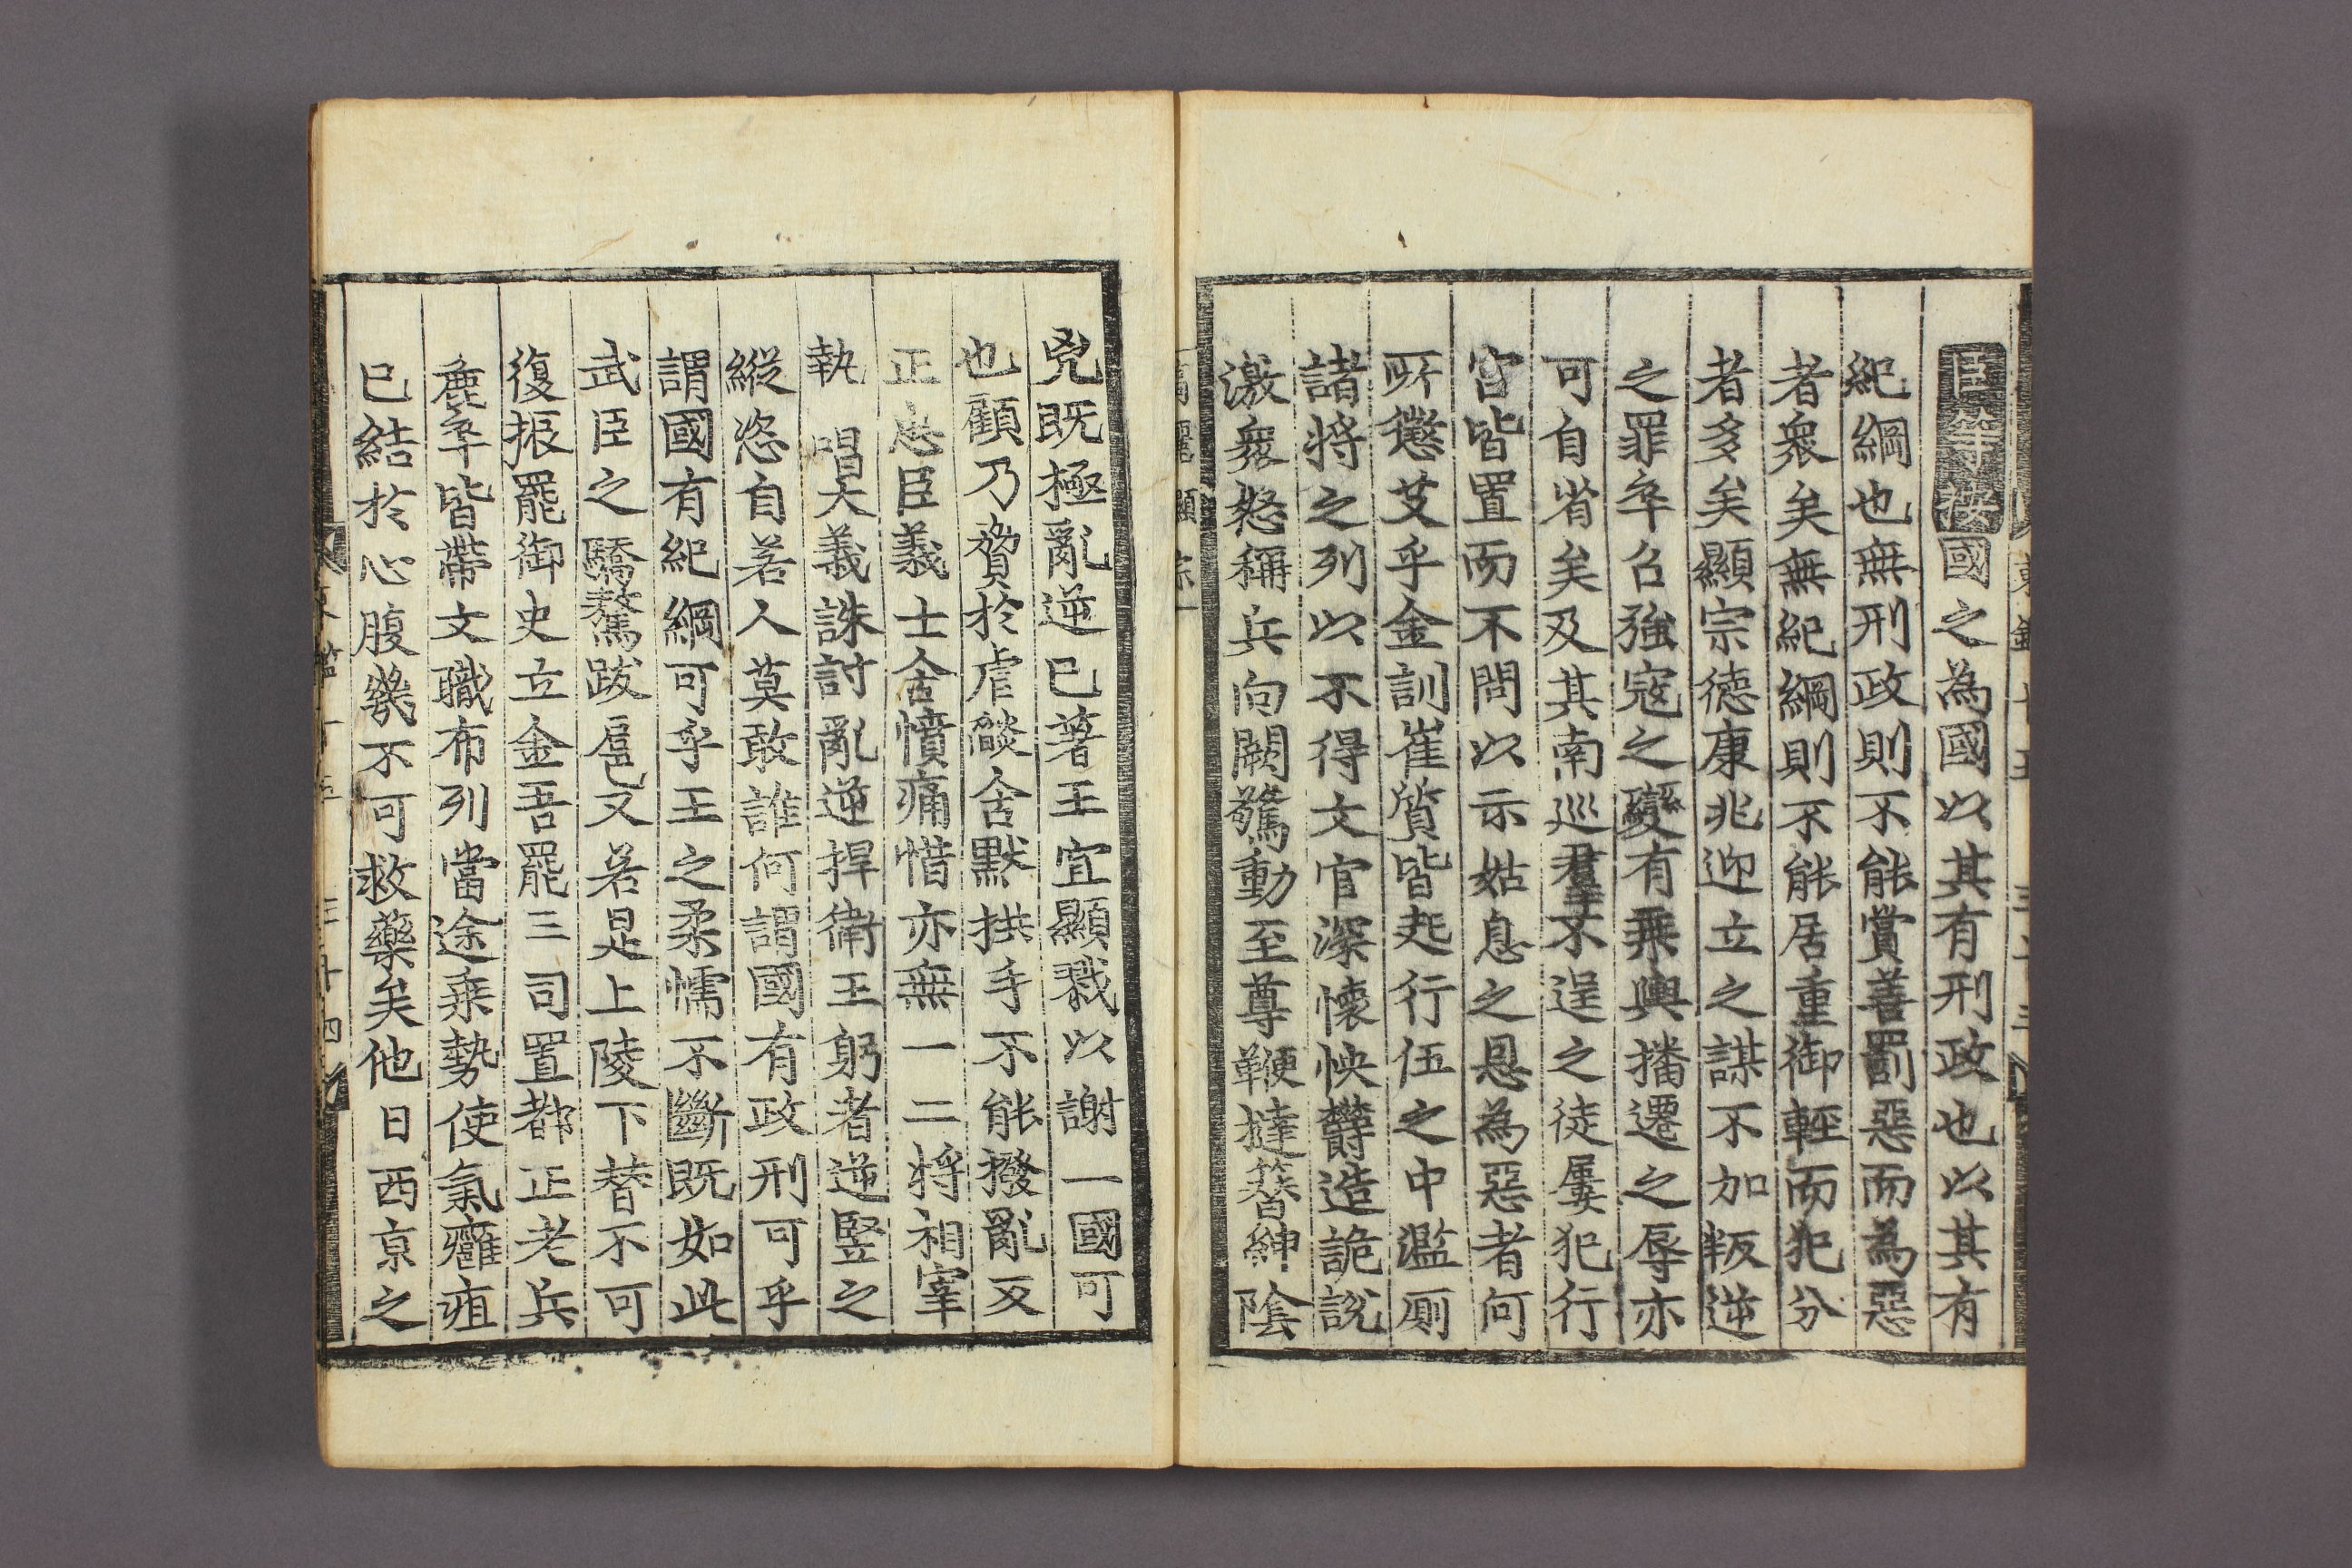 臣等按國之為國以其有刑政也以其有
紀綱也無刑政則不能賞善罰惡而為惡
者衆矣無紀綱則不能居重御輕而犯分
者多矣顯宗德康兆迎立之謀不加叛逆
之罪卒召強寇之變有乘輿播遷之辱亦
可自省矣及其南巡羣不逞之徒屢犯行
宮皆置而不問以示姑息之恩為惡者何
所懲艾乎金訓崔質皆起行伍之中濫厠
諸將之列以不得文官深懷怏欝造詭說
激衆怒稱兵向闕驚動至尊鞭撻簪紳陰
兇既極亂逆已著王宜顯戮以謝一國可
也顧乃脅於虐燄含默拱手不能撥亂反
正忠臣義士含憤痛惜亦無一二將相宰
執唱大義誅討亂逆捍衛王躬者逆竪之
縱恣自若人莫敢誰何謂國有政刑可乎
謂國有紀綱可乎王之柔懦不斷既如此
武臣之驕驁跋扈又若是上陵下替不可
復振罷御史立金吾罷三司置都正老兵
麁卒皆帶文職布列當途乘勢使氣癰疽
已結於心腹幾不可救藥矣他日西京之